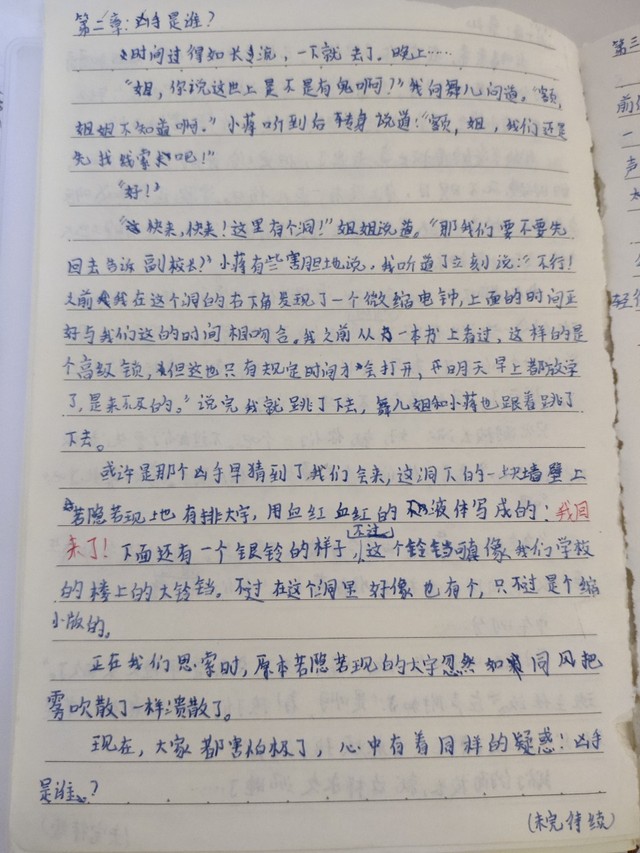 第二章：凶手是谁？
时间过得如长流，一下就去了。晚上……
“姐，你说这世上是不是有鬼啊？”我向舞儿问道。“额，
姐姐不知道啊。”小蒋听到后转身说道：“额，姐，我们还是
先找线索吧！”
“好！”
“快来，快来！这里有个洞！”姐姐说道。“那我们要不要先
回去告诉副校长？”小蒋有些害胆地说，我听道了立刻说：“不行！
之前我在这个洞的右下角发现了一个微缩电钟，上面的时间正
好与我们这的时间相吻合。我之前从一本书上看过，这样的是
个高级锁，但这也只有规定时间才会打开，明天早上都放学
了，是来不及的。”说完我就跳了下去，舞儿姐和小蒋也跟着跳了
下去。
或许是那个凶手早猜到了我们会来，这洞下的一块墙壁上
若隐若现地有排大字，用血红血红的液体写成的：我回
来了！下面还有一个银铃的样子，不过这个铃铛可真像我们学校
的楼上的大铃铛。不过在这个洞里好像也有个，只不过是个缩
小版的。
正在我们思索时，原本若隐若现的大字忽然如同风把
雾吹散了一样溃散了。
现在，大家都害怕极了，心中有着同样的疑惑！凶手
是谁？
（未完待续）
第三
前
一
声